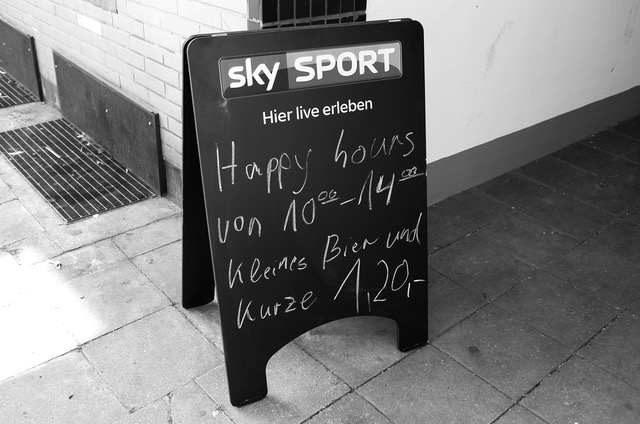 sky SPORT
Hier live erleben
Happy hours
von 10⁰⁰-14⁰⁰
Kleines Bier und
Kurze 1,20,-